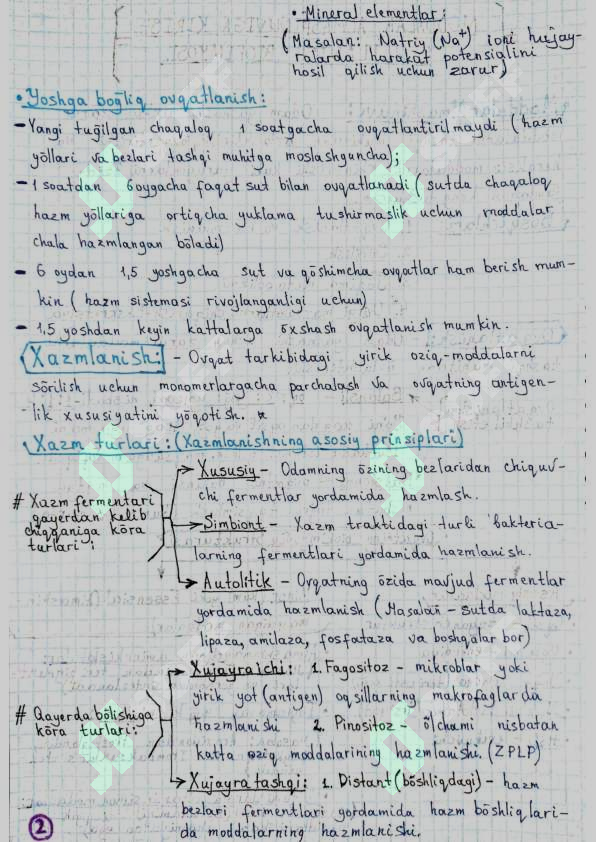 • Mineral elementlar:
(Masalan: Natriy (Na⁺) ioni hujay-
ralarda harakat potensiglini
hosil qilish uchun zarur)
• Yoshga bog̅liq ovqatlanish:
- Yangi tug̅ilgan chaqaloq 1 soatgacha ovqatlantirilmaydi (hazm
yo̅llari va bezlari tashqi muhitga moslashguncha);
- 1 soatdan 6oygacha faqat sut bilan ovqatlanadi (sutda chaqaloq
hazm yo̅llariga ortiqcha yuklama tushirmaslik uchun moddalar
chala hazmlangan bo̅ladi)
- 6 oydan 1,5 yoshgacha sut va qo̅shimcha ovqatlar ham berish mum-
kin (hazm sistemasi rivojlanganligi uchun)
- 1,5 yoshdan keyin kattalarga o̅xshash ovqatlanish mumkin.
• Xazmlanish: - Ovqat tarkibidagi yirik oziq-moddalarni
so̅rilish uchun monomerlargacha parchalash va ovqatning antigen-
lik xususiyatini yo̅qotish.
• Xazm turlari: (Xazmlanishning asosiy prinsiplari)
# Xazm fermentari
qayerdan kelib
chiqqaniga ko̅ra
turlari:
Xususiy - Odamning o̅zining bezlaridan chiquv-
chi fermentlar yordamida hazmlash.
Simbiont - Xazm traktidagi turli bakteria-
larning fermentlari yordamida hazmlanish.
Autolitik - Ovqatning o̅zida mavjud fermentlar
yordamida hazmlanish (Masalan - sutda laktaza,
lipaza, amilaza, fosfataza va boshqalar bor)
# Qayerda bo̅lishiga
ko̅ra turlari:
Xujayraichi: 1. Fagositoz - mikroblar yoki
yirik yot (antigen) oqsillarning makrofaglarda
hazmlanishi 2. Pinositoz - o̅lchami nisbatan
katta oziq moddalarining hazmlanishi. (ZPLP)
Xujayratashqi: 1. Distant (bo̅shliqdagi) - hazm
bezlari fermentlari yordamida hazm bo̅shliqlari-
da moddalarning hazmlanishi.
2